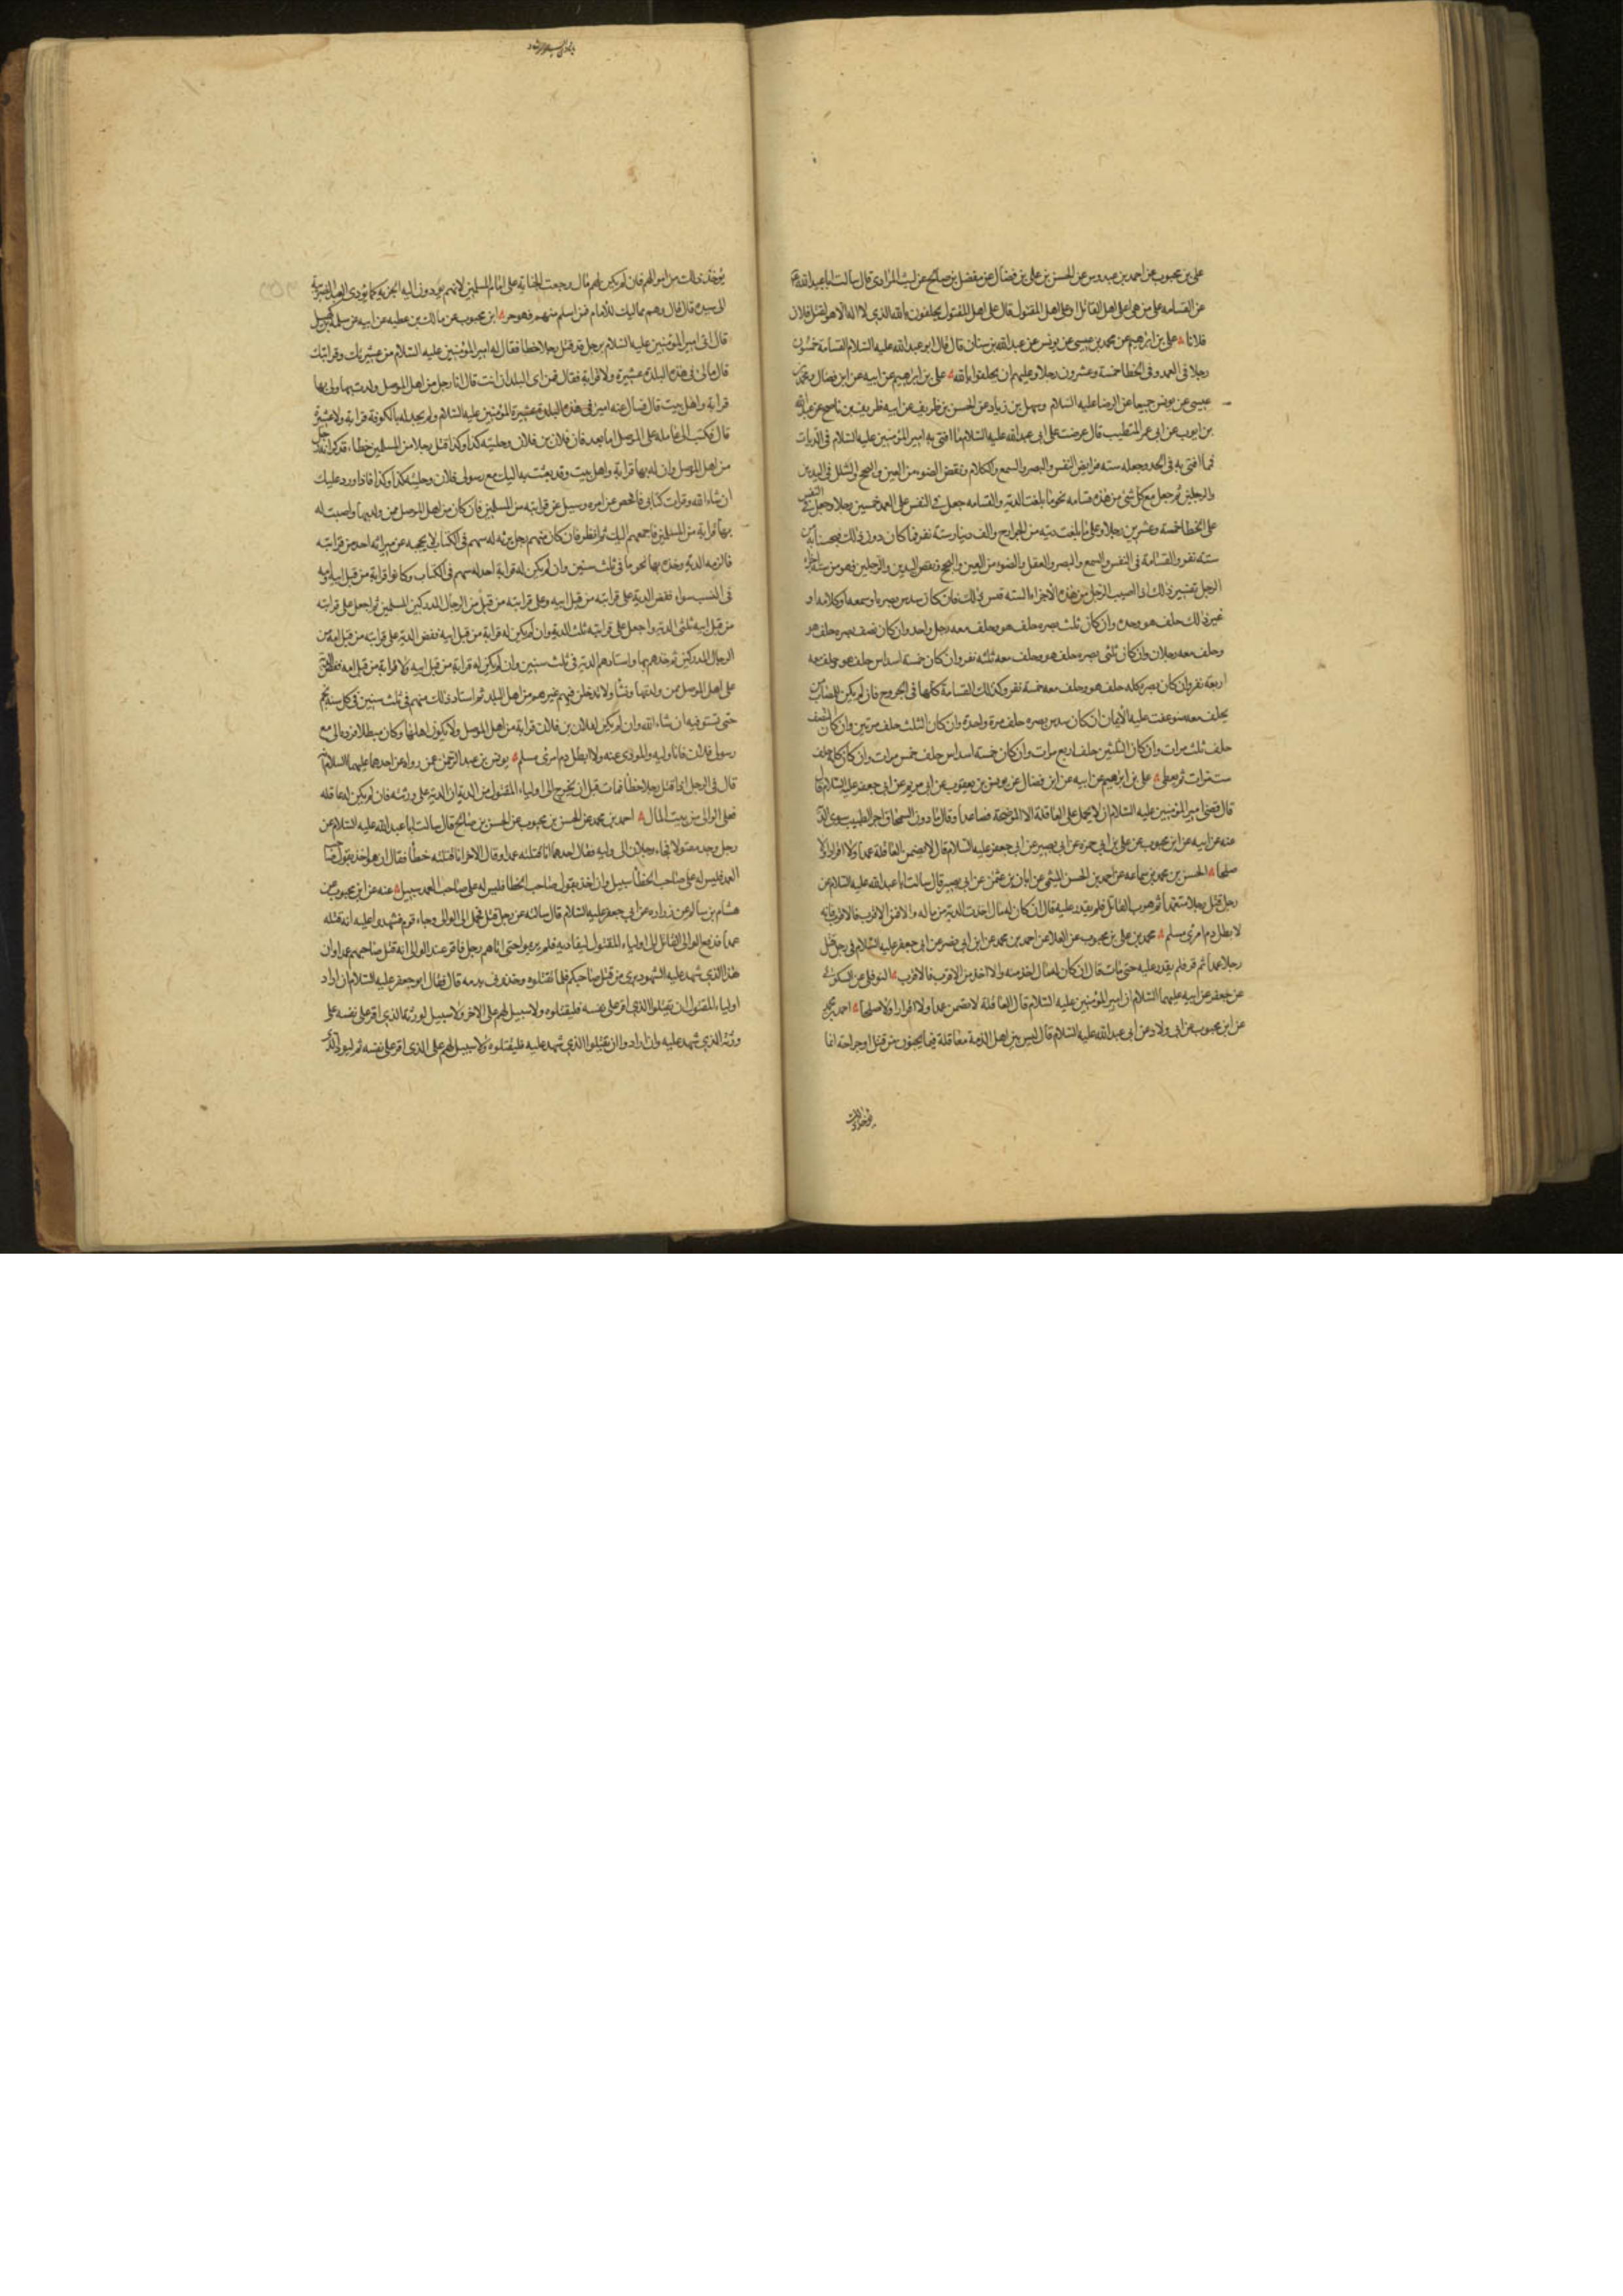 على بن محبوب عن احمد بن عبدوس عن الحسن بن على بن فضال عن مفضل بن صالح عن ليث المرادى قال سالت اباعبدالله ع
عن القسامه على من هى اعلى اهل القاتل اوعلى اهل المقتول قال على اهل المقتول يحلفون بالله الذى لا اله الا هو لقتل فلان
فلانا على بن ابراهيم عن محمد بن عيسى عن يونس عن عبدالله بن سنان قال قال ابو عبدالله عليه السلام القسامة خمسون
رجلا فى العمد وفى الخطا خمسة وعشرون رجلا وعليهم ان يحلفوا بالله على بن ابراهيم عن ابيه عن ابن فضال ومحمد بن
عيسى عن يونس جميعا عن الرضا عليه السلام وسهل بن زياد عن الحسن بن ظريف عن ابيه ظريف بن ناصح عن عبدالله
بن ايوب عن ابى عمر المتطبب قال عرضت على ابى عبدالله عليه السلام ما افتى به امير المؤمنين عليه السلام فى الديات
فما افتى به فى الجسد وجعله سته فرايض النفس والبصر والسمع والكلام ونقص الضوء من العين والبحح والشلل فى اليدين
والرجلين ثم جعل مع كل شئ من هذه قسامه نحو ما بلغت الدية والقسامه جعل فى النفس على العمد خمسين رجلا وجعل فى النفس
على الخطا خمسة وعشرين رجلا وعلى ما بلغت ديته من الجوارح والف دينار ستة نفر فما كان دون ذلك فبحسابه من
سته نفر والقسامة فى النفس والسمع والبصر والعقل والضوء من العين والبحح ونقص اليدين والرجلين فهو من ستة اجزاء
الرجل تفسير ذلك اذا اصيب الرجل من هذه الاجزاء الستة قيس ذلك فان كان سدس بصره او سمعه او كلامه او
غير ذلك حلف هو وحده وان كان ثلث بصره حلف هو وحلف معه رجل واحد وان كان نصف بصره حلف هو
وحلف معه رجلان وان كان ثلثى بصره حلف هو وحلف معه ثلثه نفر وان كان خمسة اسداس حلف هو وحلف معه
اربعة نفر وان كان بصره كله حلف هو وحلف معه خمسة نفر وكذلك القسامة كلها فى الجروح فان لم يكن للمصاب من
يحلف معه ضوعفت عليه الايمان ان كان سدس بصره حلف مرة واحدة وان كان الثلث حلف مرتين وان كان النصف
حلف ثلث مرات وان كان الثلثين حلف اربع مرات وان كان خمسة اسداس حلف خمس مرات وان كان كله حلف
ست مرات ثم يعطى على بن ابراهيم عن ابيه عن ابن فضال عن يونس بن يعقوب عن ابى مريم عن ابى جعفر عليه السلام قال
قال قضى امير المؤمنين عليه السلام ان لا يحمل على العاقلة الا الموضحة فصاعدا وقال ما دون السمحاق اجر الطبيب سوى الدية
عنه عن ابيه عن ابن محبوب عن على بن ابى حمزه عن ابى بصير عن ابى جعفر عليه السلام قال لا تضمن العاقلة عمدا ولا اقرارا ولا
صلحا الحسن بن محمد بن سماعه عن احمد بن الحسن الميثمى عن ابان بن عثمن عن ابى بصير قال سالت ابا عبدالله عليه السلام عن
رجل قتل رجلا متعمدا ثم هرب القاتل فلم يقدر عليه قال ان كان له مال اخذت الدية من ماله والا فمن الاقرب فالاقرب فانه
لا يطل دم امرئ مسلم محمد بن على بن محبوب عن العلا عن احمد بن محمد عن ابن ابى نصر عن ابى جعفر عليه السلام فى رجل قتل
رجلا عمدا ثم فر فلم يقدر عليه حتى مات قال ان كان له مال اخذ منه والا اخذ من الاقرب فالاقرب النوفلى عن السكونى
عن جعفر عن ابيه عليهما السلام ان امير المؤمنين عليه السلام قال العاقلة لا تضمن عمدا ولا اقرارا ولا صلحا احمد بن محمد
عن ابن محبوب عن ابى ولاد عن ابى عبدالله عليه السلام قال ليس بين اهل الذمة معاقلة فيما يجنون من قتل او جراحة انما
يؤخذ ذلك
يؤخذ ذلك من اموالهم فان لم يكن لهم مال رجعت الجناية على امام المسلمين لانهم يؤدون اليه الجزية كما يؤدى العبد الضريبة
الى سيده قال قال وهم مماليك للامام فمن اسلم منهم فهو حر ابن محبوب عن مالك بن عطيه عن ابيه عن سلمة بن كهيل
قال اتى امير المؤمنين عليه السلام برجل قد قتل رجلا خطا فقال له امير المؤمنين عليه السلام من عشيرتك وقرابتك
قال مالى فى هذه البلدة عشيرة ولا قرابة فقال فمن اى البلدان انت قال انا رجل من اهل الموصل ولدت بها ولى بها
قرابة واهل بيت قال فسال عنه امير المؤمنين عليه السلام ولم يجد له بالكوفة قرابة ولا عشيرة
قال فكتب الى عامله على الموصل اما بعد فان فلان بن فلان وحليته كذا وكذا قتل رجلا من المسلمين خطاء فذكر انه رجل
من اهل الموصل وان له بها قرابة واهل بيت وقد بعثت به اليك مع رسولى فلان وحليته كذا وكذا فاذا ورد عليك
ان شاء الله وقرات كتابى فافحص عن امره وسل عن قرابته من المسلمين فان كان من اهل الموصل ممن ولد بها واصبت له
بها قرابة من المسلمين فاجمعهم اليك ثم انظر فان كان منهم رجل يرثه له سهم فى الكتاب لا يحجبه عن ميراثه احد من قرابته
فالزمه الدية وخذه بها نجوما فى ثلث سنين وان لم يكن له قرابة احد له سهم فى الكتاب وكانوا قرابة من قبل ابيه وامه
فى النسب سواء ففض الدية على قرابته من قبل ابيه وعلى قرابته من قبل من الرجال المدركين المسلمين ثم اجعل على قرابته
من قبل ابيه ثلثى الدية واجعل على قرابته ثلث الدية وان لم يكن له قرابة من قبل ابيه ففض الدية على قرابته من قبل امه من
الرجال المدركين ثم خذهم بها واستادهم الدية فى ثلث سنين وان لم يكن له قرابة من قبل ابيه ولا قرابة من قبل امه ففض الدية
على اهل الموصل ممن ولد بها ونشا ولا تدخلن فيهم غيرهم من اهل البلد ثم استاد ذلك منهم فى ثلث سنين فى كل سنة نجم
حتى تستوفيه ان شاء الله وان لم يكن لفلان بن فلان قرابة من اهل الموصل ولا يكون اهلها وكان مبطلا فرده الى مع
رسولى فلان فانا وليه والمودى عنه ولا ابطل دم امرئ مسلم يونس بن عبد الرحمن عمن رواه عن احدهما عليهما السلام انه
قال فى الرجل اذا قتل رجلا خطأ فمات قبل ان يخرج الى اولياء المقتول من الدية ان الدية على ورثته فان لم يكن له عاقله
فعلى الوالى من بيت المال احمد بن محمد عن الحسن بن محبوب عن الحسن بن صالح قال سالت ابا عبدالله عليه السلام عن
رجل وجد مقتولا فجاء رجلان الى وليه فقال احدهما انا قتلته عمدا وقال الاخر انا قتلته خطأ فقال ان هو اخذ بقول صاحب
العمد فليس له على صاحب الخطأ سبيل وان اخذ بقول صاحب الخطا فليس له على صاحب العمد سبيل عنه عن ابن محبوب عن
هشام بن سالم عن زراره عن ابى جعفر عليه السلام قال سالته عن رجل قتل فحمل الى الوالى وجاء قوم فشهدوا عليه انه قتله
عمدا فدفع الوالى القاتل الى اولياء المقتول ليقاد به فلم يريموا حتى اتاهم رجل فاقر عند الوالى انه قتل صاحبهم عمدا وان
هذا الذى شهد عليه الشهود برى من قتل صاحبكم فلا تقتلوه وخذونى بدمه قال فقال ابو جعفر عليه السلام ان اراد
اولياء المقتول ان يقتلوا الذى اقر على نفسه فليقتلوه ولا سبيل لهم على الاخر ولا سبيل لورثة الذى اقر على نفسه على
ورثة الذى شهد عليه وان ارادوا ان يقتلوا الذى شهد عليه فليقتلوه ولا سبيل لهم على الذى اقر على نفسه ثم ليؤد الذى